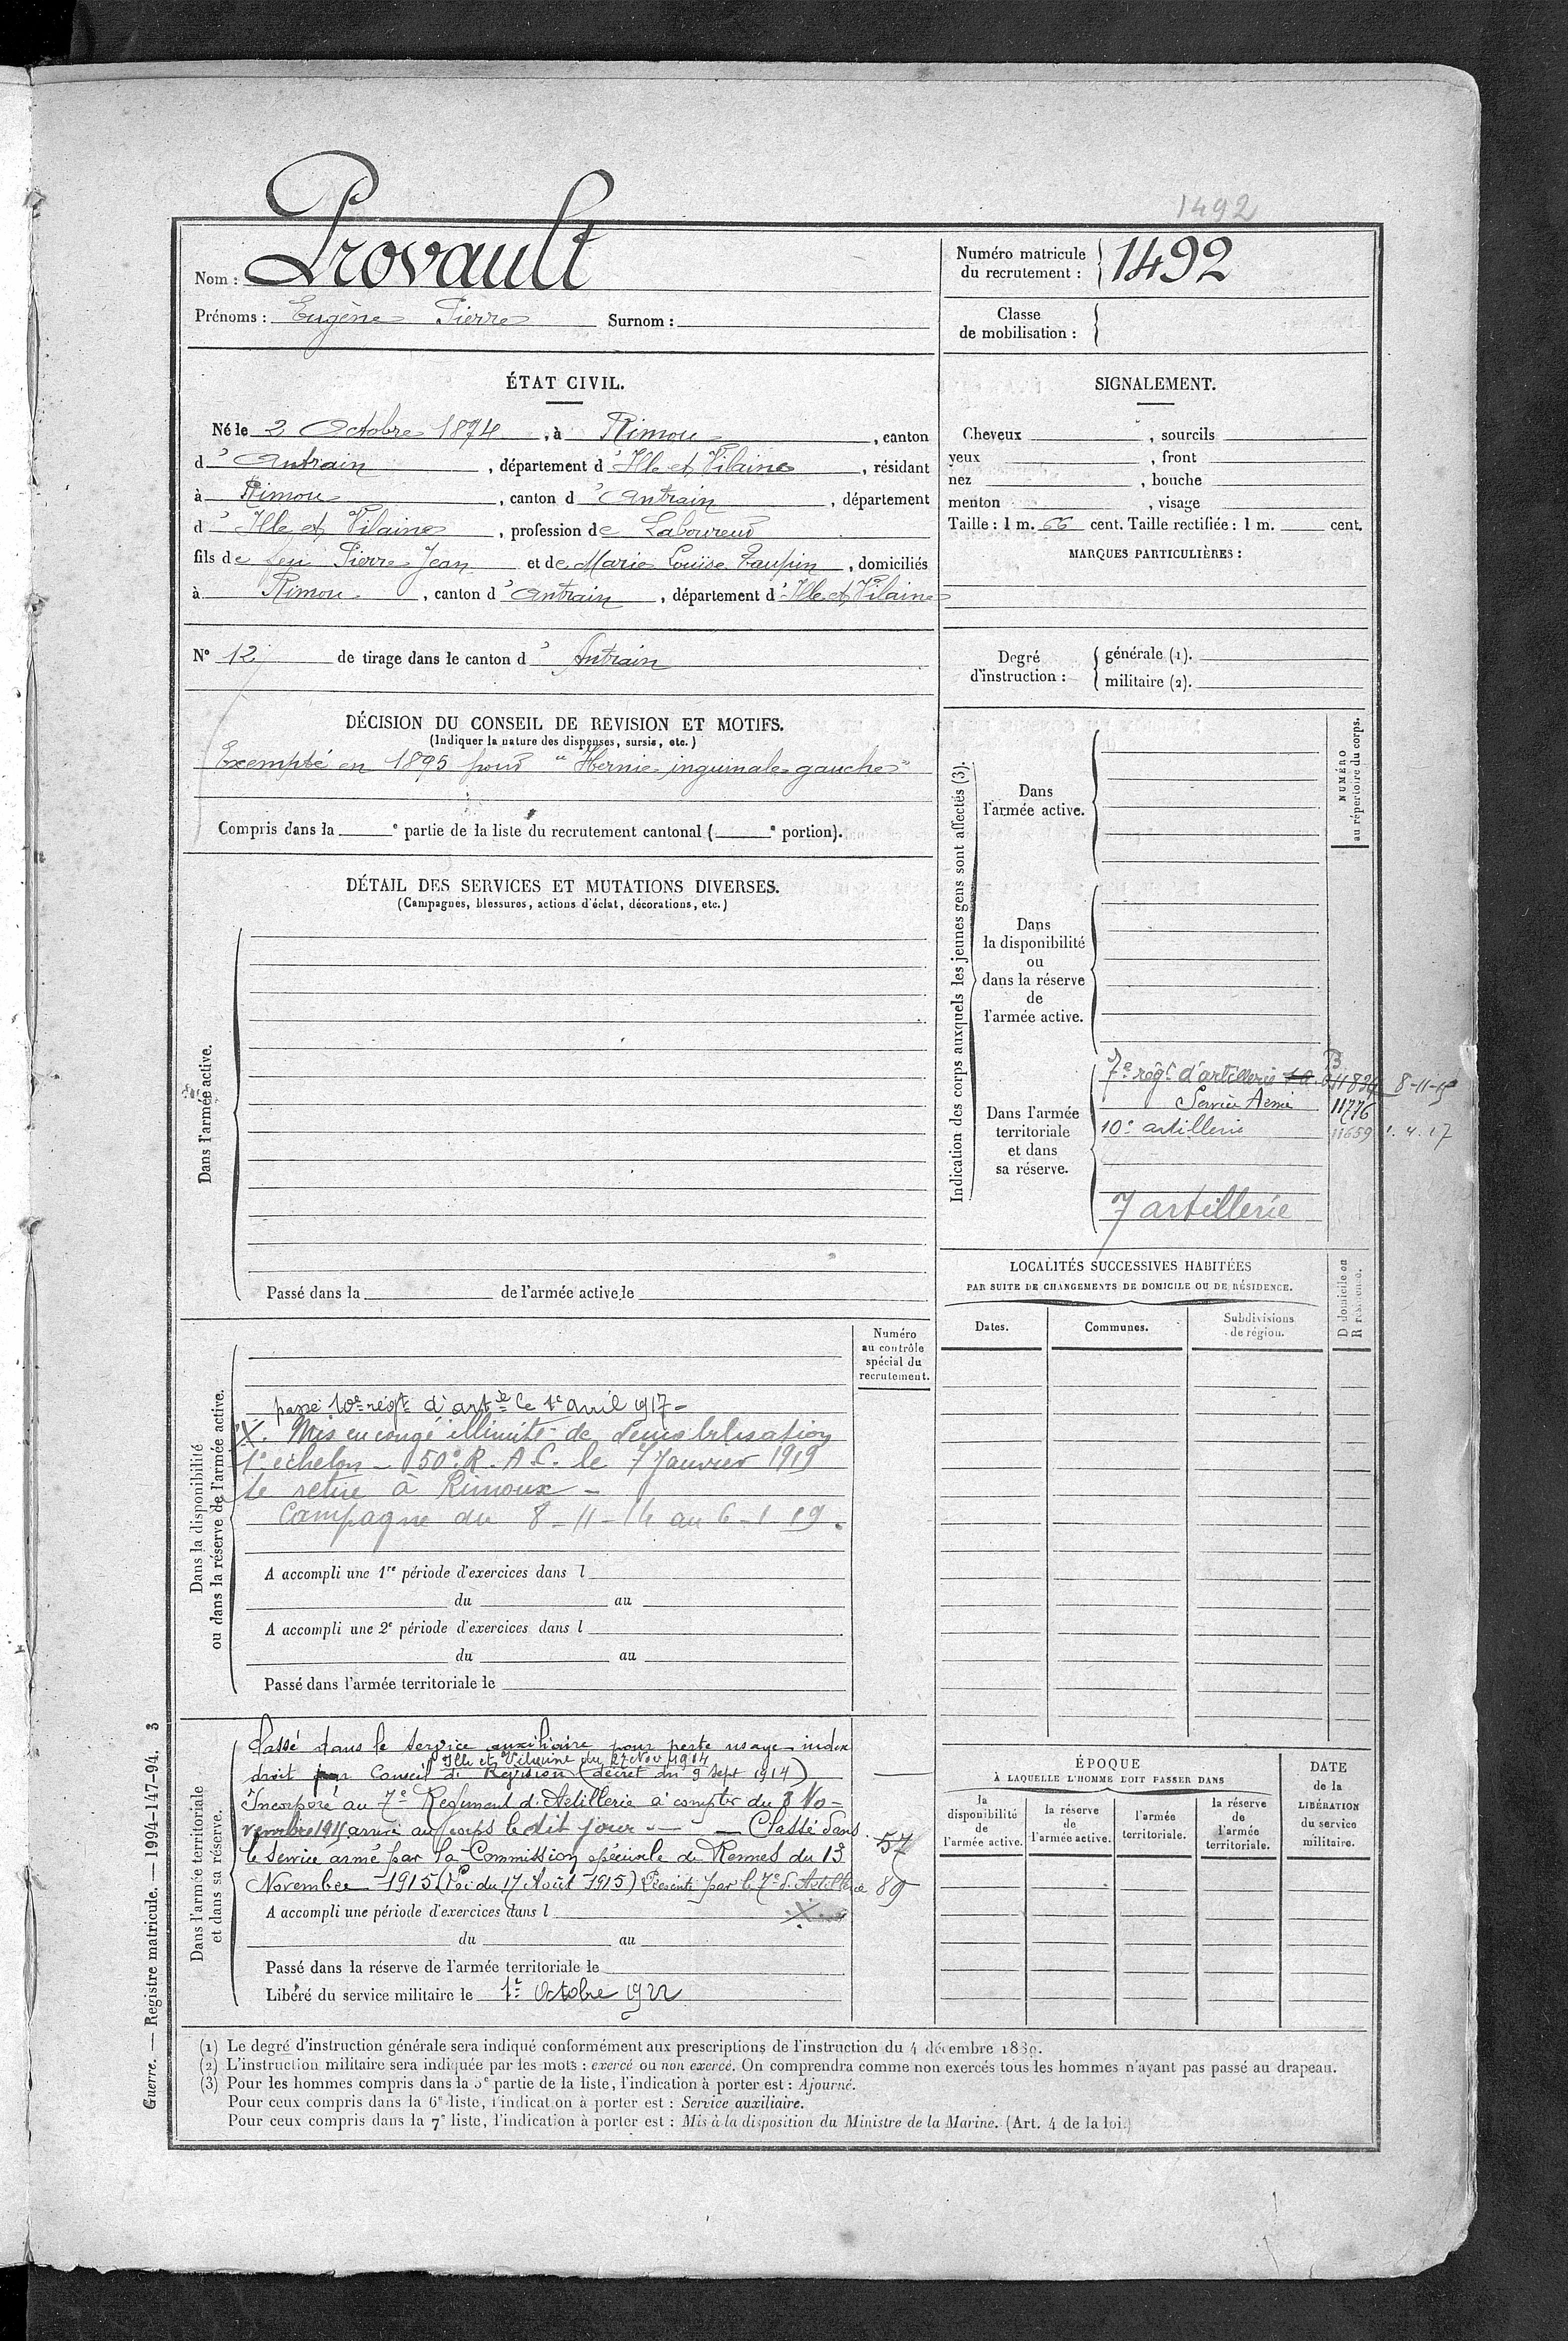 1492
Nom : Provault
Prénoms : Eugène Pierre Surnom :
Numéro matricule du recrutement : 1492
Classe de mobilisation :
ÉTAT CIVIL.
Né le 2 Octobre 1874, à Rimou, canton
d'Antrain, département d'Ille et Vilaine, résidant
à Rimou, canton d'Antrain, département
d'Ille et Vilaine, profession de Laboureur
fils de feu Pierre Jean et de Marie Louise Taupin, domiciliés
à Rimou, canton d'Antrain, département d'Ille et Vilaine
N° 12 de tirage dans le canton d'Antrain
SIGNALEMENT.
Cheveux , sourcils
yeux , front
nez , bouche
menton , visage
Taille : 1 m. 66 cent. Taille rectifiée : 1 m. cent.
MARQUES PARTICULIÈRES :
Degré d'instruction : générale (1).
militaire (2).
DÉCISION DU CONSEIL DE REVISION ET MOTIFS.
(Indiquer la nature des dispenses, sursis, etc.)
Exempté en 1895 pour "Hernie inguinale gauche"
Compris dans la e partie de la liste du recrutement cantonal ( e portion).
DÉTAIL DES SERVICES ET MUTATIONS DIVERSES.
(Campagnes, blessures, actions d'éclat, décorations, etc.)
Dans l'armée active.
Passé dans la de l'armée active le
Indication des corps auxquels les jeunes gens sont affectés (3).
NUMÉRO au répertoire du corps.
Dans l'armée active.
Dans la disponibilité ou dans la réserve de l'armée active.
Dans l'armée territoriale et dans sa réserve.
7e régt d'artillerie 11824 8-11-15
Service Armé 11776
10e artillerie 11659 1.4.17
7 artillerie
LOCALITÉS SUCCESSIVES HABITÉES
PAR SUITE DE CHANGEMENTS DE DOMICILE OU DE RÉSIDENCE.
Dates. Communes. Subdivisions de région. D domicile ou R résidence.
Numéro au contrôle spécial du recrutement.
Dans la disponibilité ou dans la réserve de l'armée active.
passé 10e régt d'artie le 1er avril 1917 -
X. Mis en congé illimité de démobilisation
1e échelon - 50e R.A.C. le 7 Janvier 1919
se retire à Rimoux -
Campagne du 8-11-14 au 6-1-19.
A accompli une 1re période d'exercices dans l
du au
A accompli une 2e période d'exercices dans l
du au
Passé dans l'armée territoriale le
Dans l'armée territoriale et dans sa réserve.
Classé dans le service auxiliaire pour perte usage index
Ille et Vilaine du 27 Nov 1914
droit par Conseil de Révision (décret du 9 Sept 1914)
Incorporé au 7e Régiment d'Artillerie à compter du 8 No-
vembre 1914 arrivé au corps le dit jour — — Classé dans 57
le service armé par la Commission spéciale de Rennes du 13
Novembre 1915 (Loi du 17 Août 1915) Présenté par le 7e d'Artillerie 89
A accompli une période d'exercices dans l X
du au
Passé dans la réserve de l'armée territoriale le
Libéré du service militaire le 1er Octobre 1922
ÉPOQUE
À LAQUELLE L'HOMME DOIT PASSER DANS
la disponibilité de l'armée active. la réserve de l'armée active. l'armée territoriale. la réserve de l'armée territoriale.
DATE de la LIBÉRATION du service militaire.
(1) Le degré d'instruction générale sera indiqué conformément aux prescriptions de l'instruction du 4 décembre 1889.
(2) L'instruction militaire sera indiquée par les mots : exercé ou non exercé. On comprendra comme non exercés tous les hommes n'ayant pas passé au drapeau.
(3) Pour les hommes compris dans la 5e partie de la liste, l'indication à porter est : Ajourné.
Pour ceux compris dans la 6e liste, l'indication à porter est : Service auxiliaire.
Pour ceux compris dans la 7e liste, l'indication à porter est : Mis à la disposition du Ministre de la Marine. (Art. 4 de la loi.)
Guerre. — Registre matricule. — 1994-147-94. 3